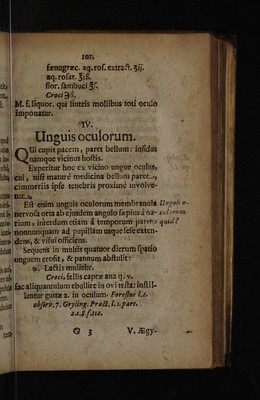 101.
fænugræc. aq. ros. extract. ʒij.
aq. rosat. ʒiß.
flor. sambuci ℥ß.
Croci ℈ß.
M. f. liquor. qui linteis mollibus toti oculo
imponatur.
IV.
Unguis oculorum.
QUi cupit pacem, paret bellum: infidus
namque vicinus hostis.
Experitur hoc ex vicino ungue oculus,
cui, nisi maturè medicina bellum paret,
cimmeriis ipse tenebris proximè involve-
tur.
Est enim unguis oculorum membranula
nervosa orta ab ejusdem angulo sæpius à na-
rium, interdum etiam à temporum parte
nonnumquam ad pupillam usque sese exten-
dens, & visui officiens.
Unguis o-
culorum
quid?
Sequens in multis quatuor dierum spatio
unguem erosit, & pannum abstulit:
℞. Lactis muliebr.
Croci, fellis capræ ana q. v.
fac aliquantulum ebullire in ovi testa: instil-
lentur guttæ 2. in oculum. Forestus l.2.
observ. 7. Gryling. Pract. l. 1. part.
2.1.§.f.112.
G 3
V. Ægy-